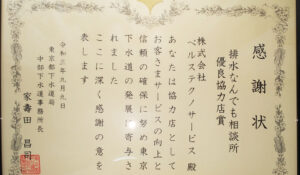 感謝状
排水なんでも相談所
優良協力店賞
株式会社
ベルステクノサービス 殿
あなたは協力店として
お客さまサービスの向上と
信頼の確保に努め東京
下水道の発展に寄与さ
れました
ここに深く感謝の意を
表します
令和三年九月九日
東京都下水道局
中部下水道事務所長
家壽田 昌司